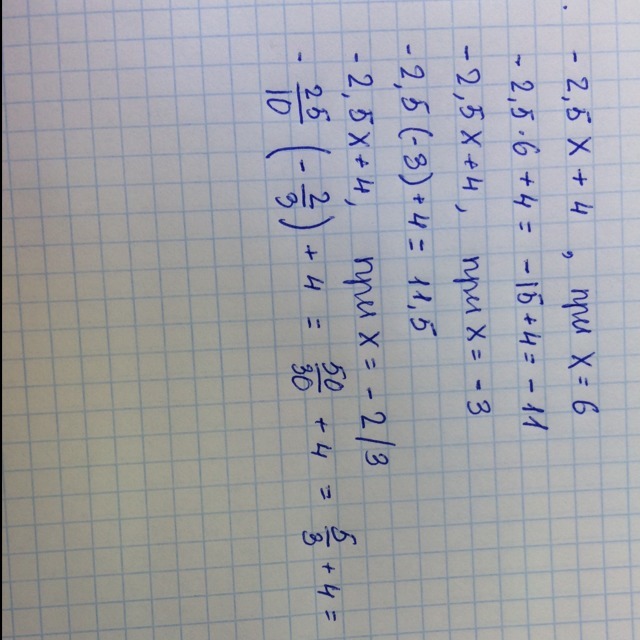 -2,5x+4, при x=6
-2,5·6+4=-15+4=-11
-2,5x+4, при x=-3
-2,5(-3)+4=11,5
-2,5x+4, при x=-2/3
-25/10(-2/3)+4=50/30+4=5/3+4=